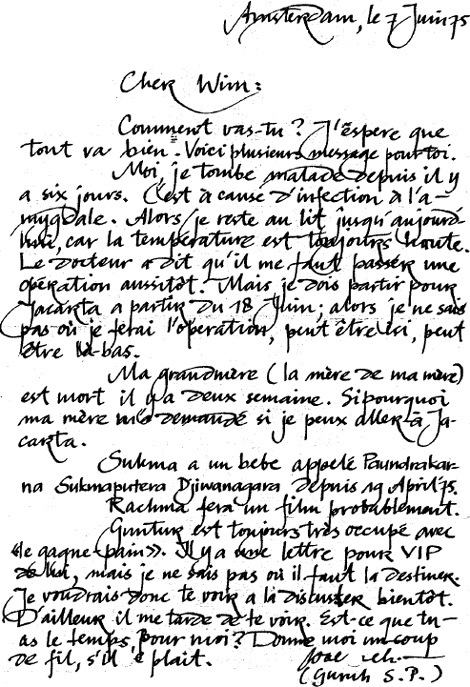 Amsterdam, le 7 Juin 75
Cher Wim:
Comment vas-tu? J'éspere que
tout va bien. Voici plusieurs message pour toi.
Moi, je tombe malade depuis il y
a six jours. C'est à cause d'infection à l'a-
mygdale. Alors je reste au lit jusqu'aujourd'
hui, car la température est toujours haute.
Le docteur a dit qu'il me faut passer une
opération aussitôt. Mais je dois partir pour
Jacarta a partir du 18 Juin; alors je ne sais
pas où je ferai l'operation, peut être ici, peut
être là-bas.
Ma grandmère (la mère de ma mère)
est mort il y a deux semaine. Si pourquoi
ma mère m'a demandé si je peux aller à Ja-
carta.
Sukma a un bebe appelé Paundrakar-
na Sukmaputera Djiwanagara depuis 19 April 75.
Rachma fera un film probablement.
Guntur est toujours très occupé avec
«le gagne-pain». Il y a une lettre pour VIP
de lui, mais je ne sais pas où il faut la destiner.
Je voudrais donc te voir a la discuter bientôt.
D'ailleur il me tarde de te voir. Est-ce que tu-
as le temps pour moi? Donne moi un coup
de fil, s'il te plait.
(Guruh S.P.)